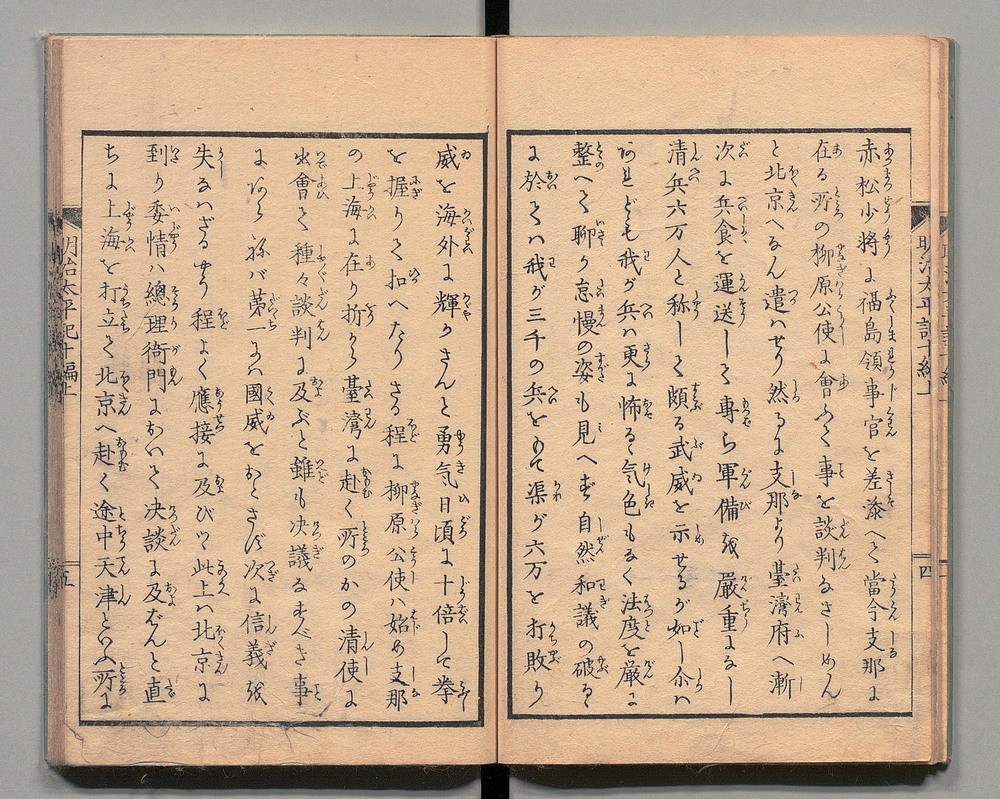 赤松少将に福島領事官を差添へて當今支那に
在る所の柳原公使に會ふて事を談判なさしめん
と北京へなん遣ハせり然るに支那より臺湾府へ漸
次に兵食を運送して専ら軍備を嚴重になし
清兵六万人と称して頗る武威を示せるが如し
されども我が兵ハ更に怖るゝ気色もなく法度を厳に
整へて聊か怠慢の姿も見へず自然和議の破るゝ
に於てハ我が三千の兵をもて渠が六万を打敗り
威を海外に輝かさんと勇気日頃に十倍して拳
を握りて扣へたりさる程に柳原公使ハ始め支那
の上海に在り折から臺湾に赴く所のかの清使に
出會て種々談判に及ぶと雖も决議なすべき事
にあらねバ第一にハ國威をおとさず次に信義を
失なハざるやう程よく應接に及びつ此上ハ北京に
到り委情ハ總理衙門において决談に及ばんと直
ちに上海を打立て北京へ赴く途中天津といふ所に
明治太平記十編上
四
明治太平記十編上
五